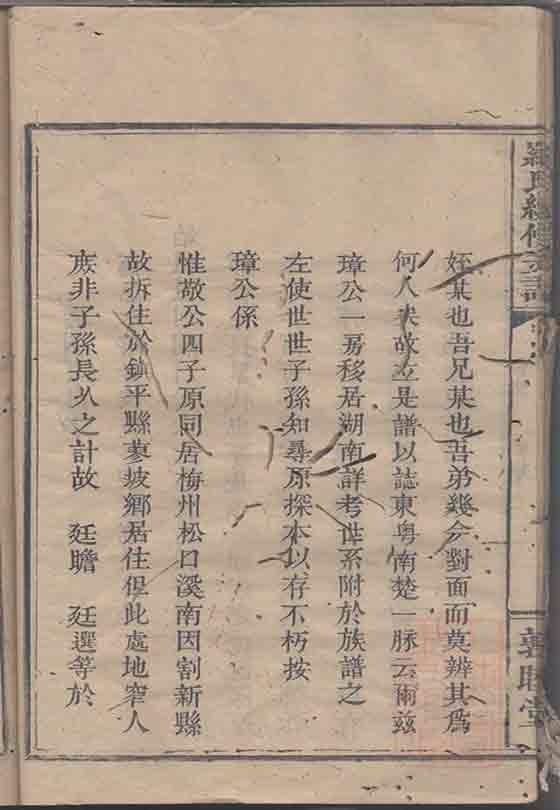 羅氏續修宗譜
襲
堂
姪某也吾兄某也吾弟幾令對面而莫辨其為
何人矣故立是譜以誌東粤南楚一脉云爾茲
璋公一房移居湖南詳考世系附於族譜之
左使世世子孫知尋原探本以存不朽按
璋公係
惟敬公四子原同居梅州松口溪南因割新縣
故拆住於鎮平縣蓼坡鄉居住但此處地窄人
庶非子孫長久之計故 廷瞻 廷選等於